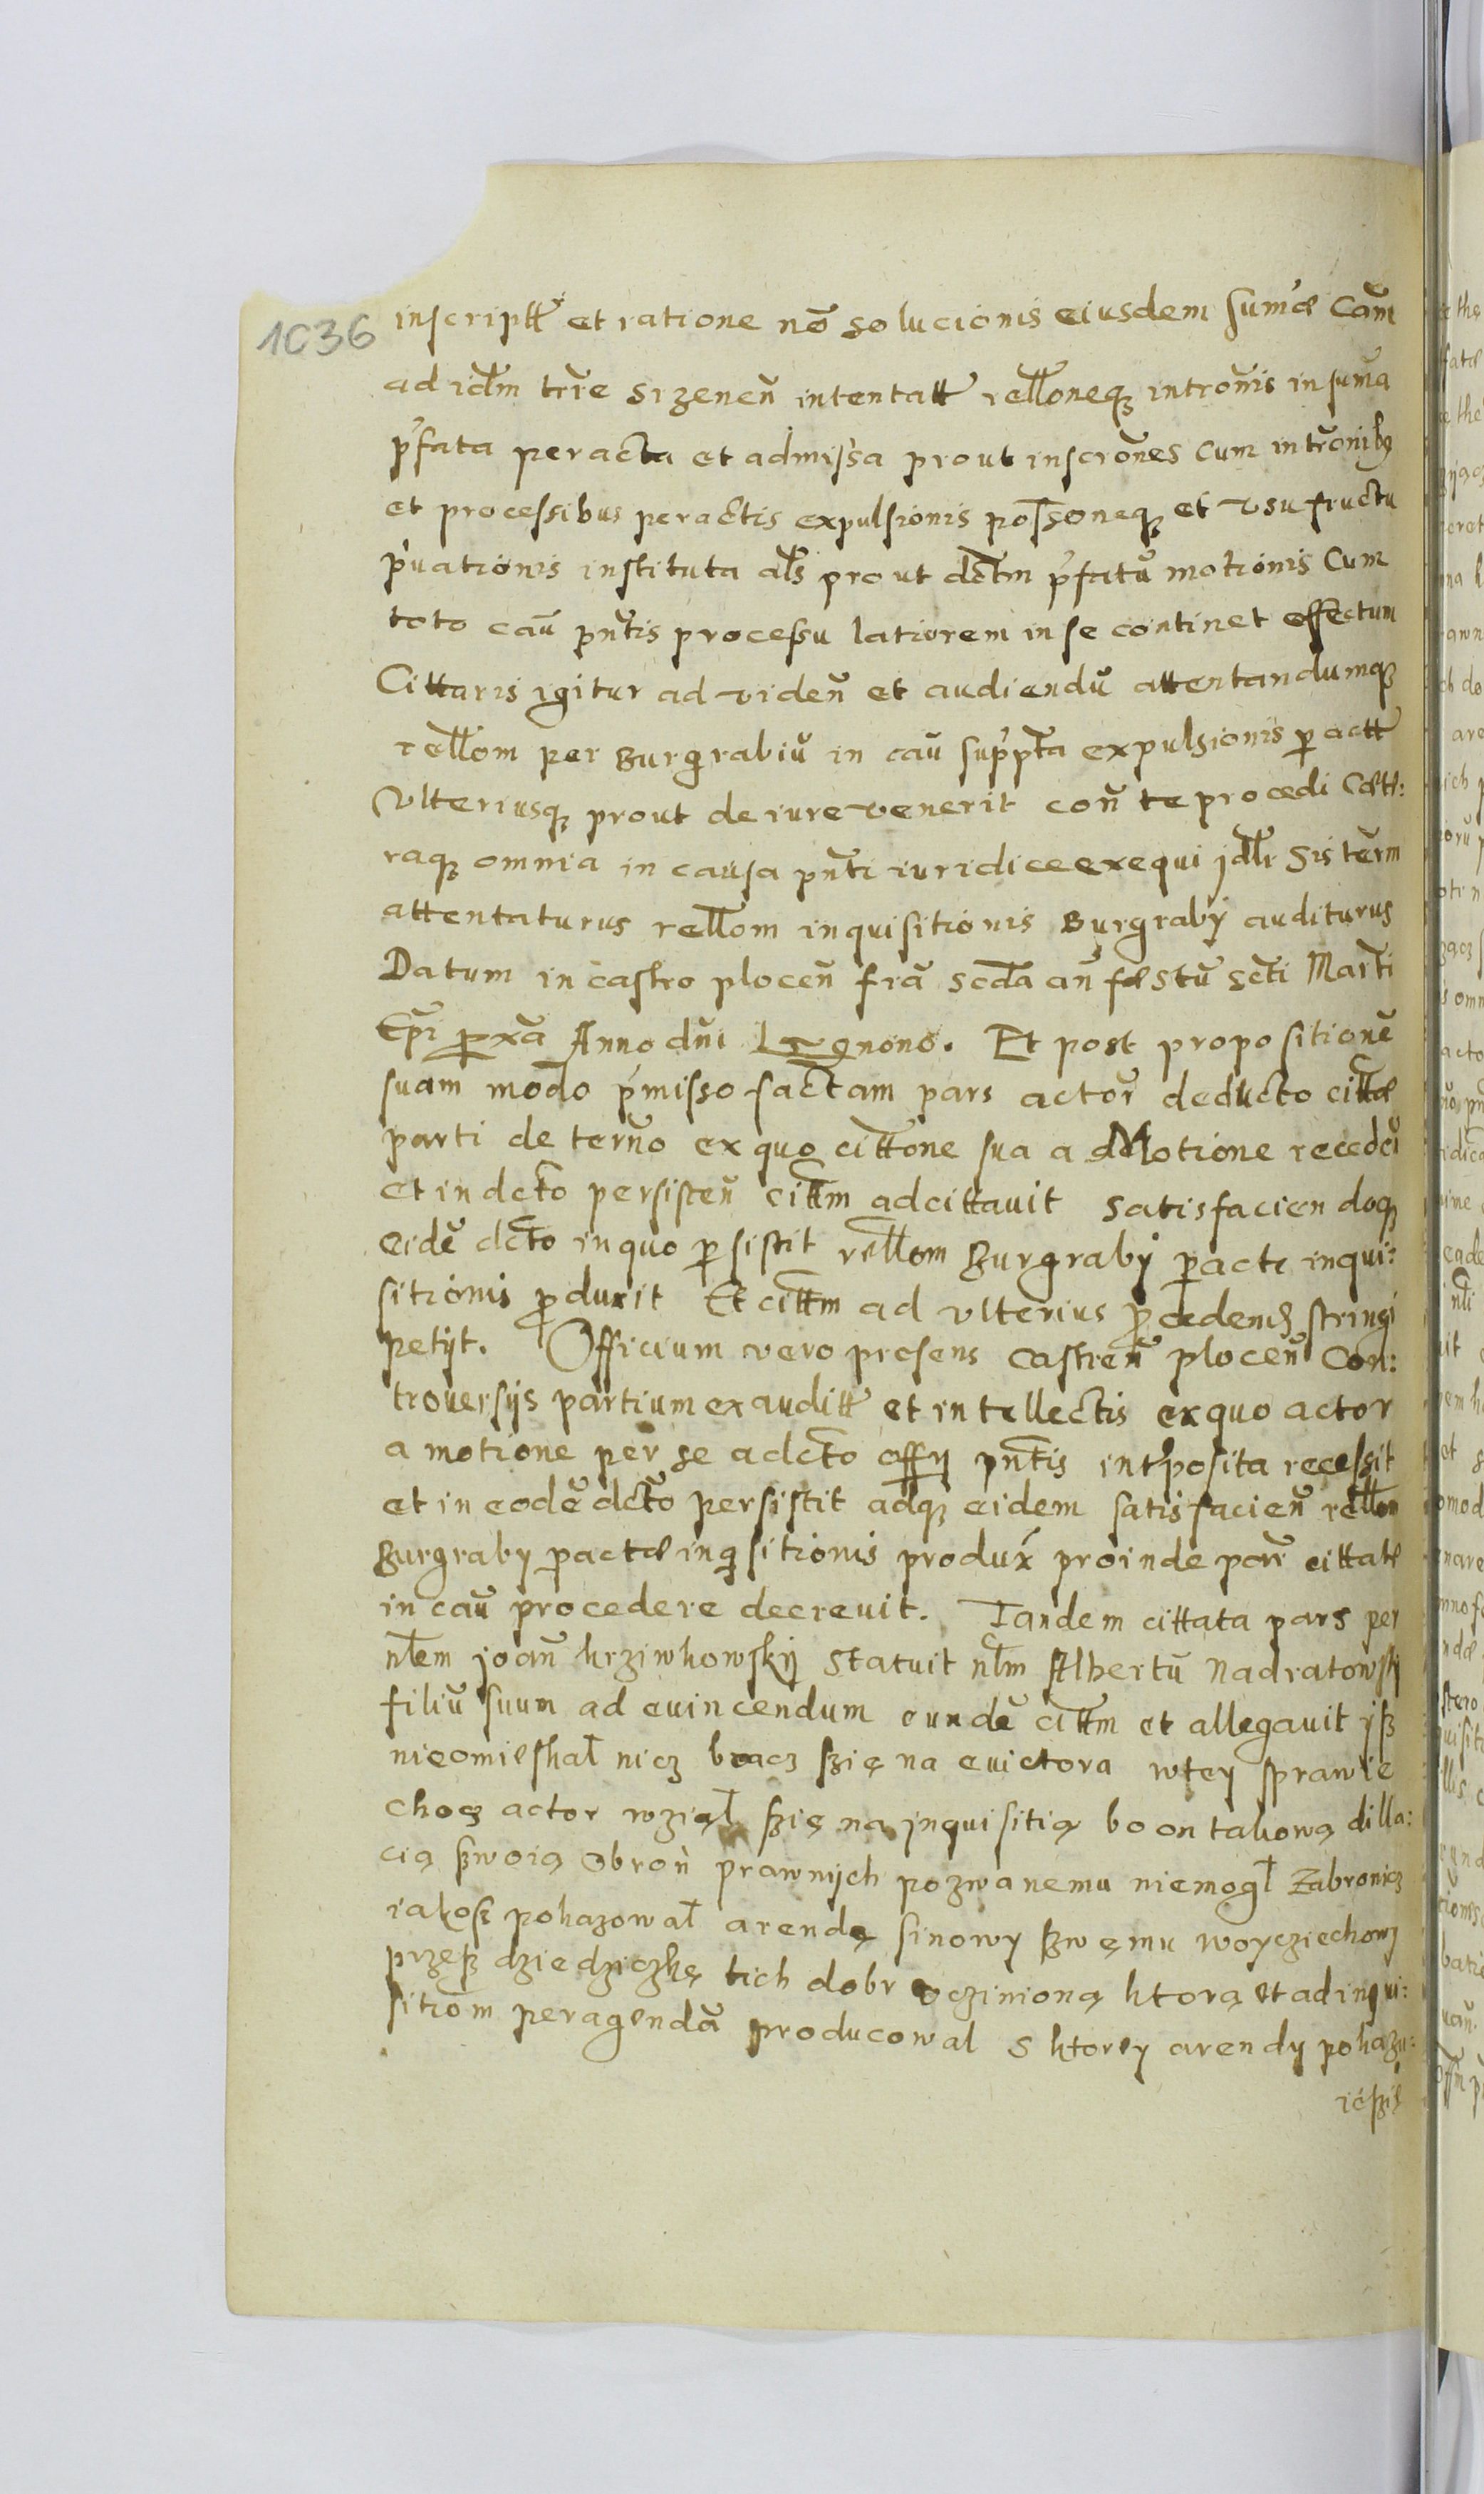 1036
inscriptt et ratione nō solucionis eiusdem sum̄æ Cām
ad id̄m trr̄e sizenen̄ intentatt rell̄oneq intron̄is in sum̄a
p̄fata peracta et admissa prout inscrōnes cum intrōnibq
et processibus peractis expulsionis pos̄soneq et vsufructu
p̄uationis instituta al̄s prout dct̄m p̄fatū motionis Cum
toto cau̅ pn̄tis processu latiorem in se continet effectum
Cittaris igitur ad viden̄ et audiendū attentandumq
rell̄om per Burgrabiū in cau̅ supp̄ta expulsionis p̱actt
Vlteriusq prout de iure venerit con̄ te procedi Cæte:
raq omnia in causa pn̄ti iuridice exequi jdl̄r Sis ter̄m
attentaturus rell̄om inquisitionis Burgraby auditurus
Datum in castro plocen̄ fr̄ia scd̄a an̄ fæstū sct̄i Mart̄i
Ep̄i p̱xa Anno dn̄i nono. Et post propositionē
suam modo p̄misso factam pars actor̄ deducto citt̄æ
parti de tern̄o ex quo citt̄one sua a Motione recedei
et in dct̄o persisten̄ citt̄m adcittauit satisfaciendoq
eidē dct̄o in quo p̱sistit rell̄om Burgraby p̱acte inqui:
sitionis p̱duxit Et citt̄m ad vlterius p̱cedend stringi
petÿt. Officium vero presens castren̄ plocen̄ Con:
trouersÿs partium exauditt et intellectis ex quo actor
a motione per se a dct̄o offÿ pn̄tis int̄posita recessit
et in eodē dct̄o persistit adq eidem satisfacien̄ rell̄om
Burgraby p̱actæ inq̄sitionis produx̄ proinde par̄ cittatæ
in cau̅ procedere decreuit. Tandem cittata pars per
nl̄em joan̄ krziwkowskÿ statuit nl̄m Albertū Nadratowskÿ
filiū suum ad euincendum eundē citt̄m et allegauit ÿsz
nieomieskał nicz bracz szię na euictora wtey sprawie
chocz actor wziął szię na inquisitią bo on takową dilla:
cią szwoią Obron̄ prawnÿch pozwanemu niemogł Zabronicz
iakosz pokazował arendę sinowy szwęmu woycziechowj
przesz dziedziczkę tich dobr vcziniona ktorą et ad inqui:
sitiōm peragendā producował s ktorey arendÿ pokazu:
ieszię